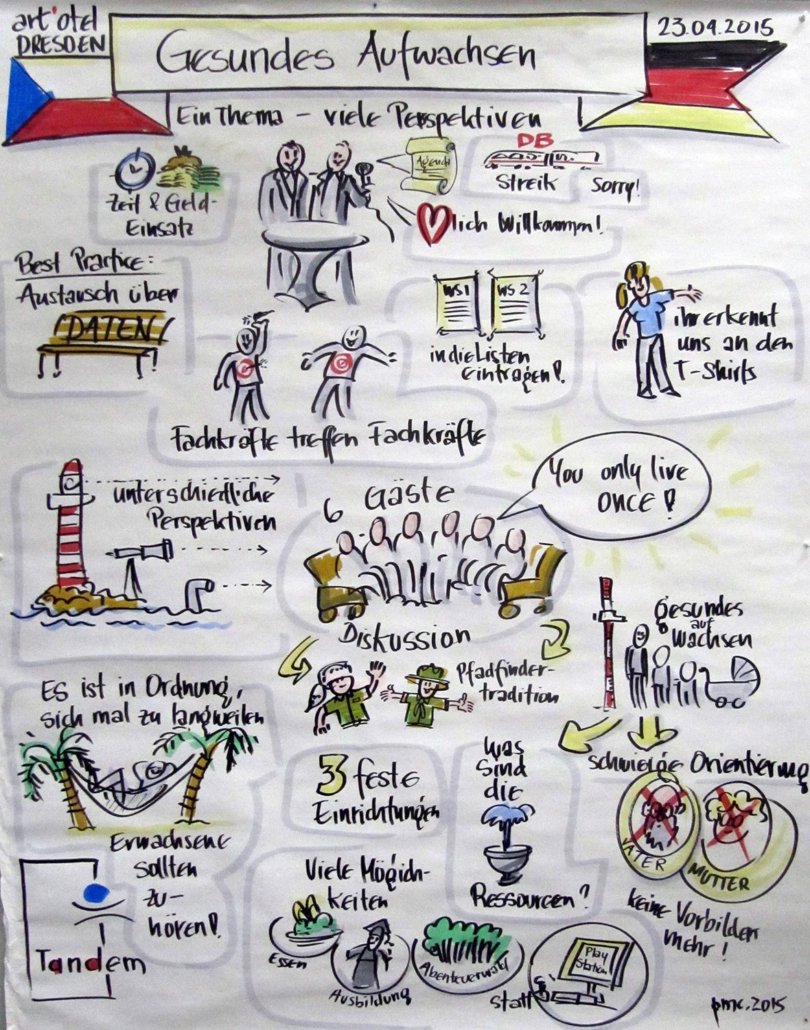 art'otel
DRESDEN
Gesundes Aufwachsen
23.04.2015
Ein Thema – viele Perspektiven
Zeit & Geld-
Einsatz
Agenda
DB
Streik Sorry!
lich Willkommen!
Best Practice:
Austausch über
DATEN
WS1
WS2
in die Listen
eintragen!
ihr erkennt
uns an den
T-Shirts
Fachkräfte treffen Fachkräfte
unterschiedliche
Perspektiven
6 Gäste
You only live
once!
Diskussion
Pfadfinder-
tradition
gesundes
auf
wachsen
Es ist in Ordnung,
sich mal zu langweilen
Erwachsene
sollten
zu-
hören!
3 feste
Einrichtungen
Was
sind
die
Ressourcen?
schwierige Orientierung
VATER
MUTTER
keine Vorbilder
mehr!
Viele Möglich-
keiten
Essen
Ausbildung
Abenteuerwald
statt
Play
Station
Tandem
pmc.2015